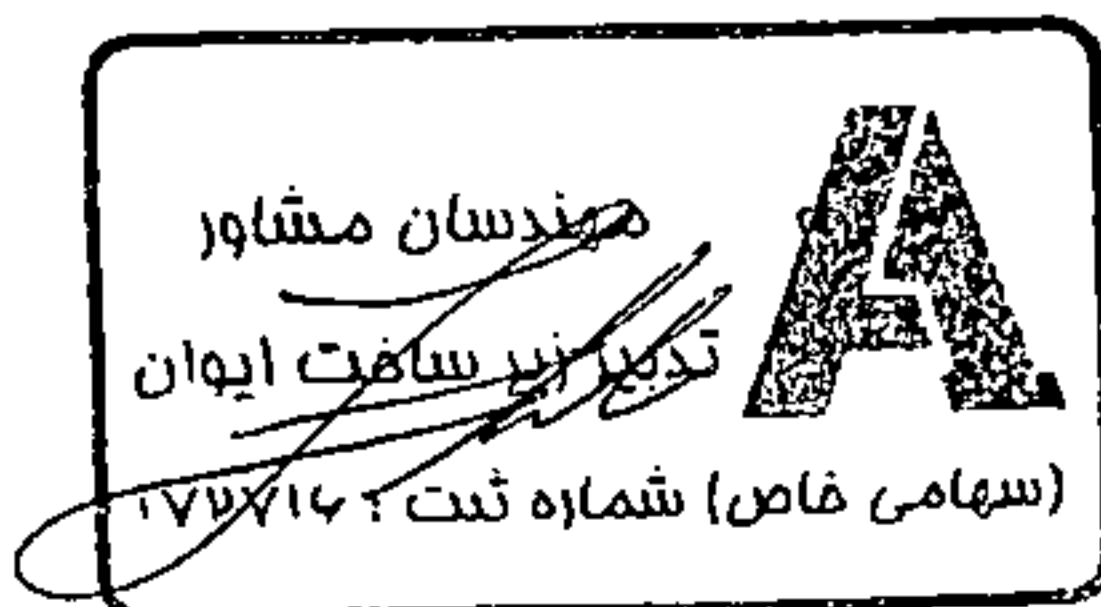 مهندسان مشاور
تدبیر زیر ساخت ایوان
(سهامی خاص) شماره ثبت :
A